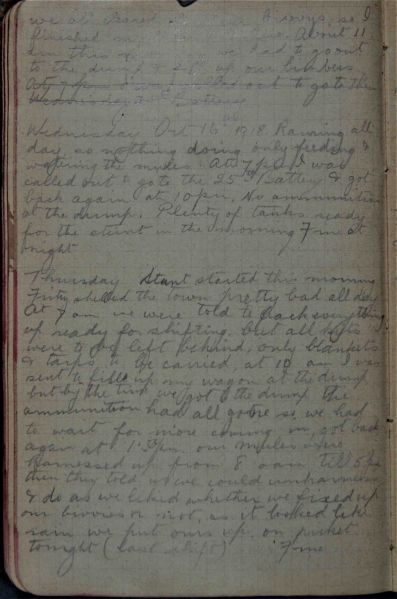 we
finished About 11
am this we had to go out
to the dump & fill up our limbers
At 7 pm I was called out to go to the
Wednesday Battery
Wednesday Oct 16th 1918. Rainring all
day so nothing doing only feeding &
watering the mules. At 7 pm I was
called out to go to the 25th Battery & got
back again at 10 pm. No ammunition
at the dump. Plenty of tanks ready
for the stunt in the morning Fine at
night
Thursday Stunt started this morning
Fritz shelled the town pretty bad all day
At 7 am we were told to pack everything
up ready for shifting. but all kits
were to be left behind, only blankets
& tarps to be carried, at 10 am I was
sent to fill up my wagon at the dump
but by the time we got to the dump the
ammunition had all gone so we had
to wait for more coming in got back
again at 1.30 pm our mules were
harnessed up from 8 oam till 5 pm
then they told us we could unharness
& do as we liked whether we fixed up
our bivvies or not, as it looked like
rain we put ours up. on picket
tonight (last shift) Fine